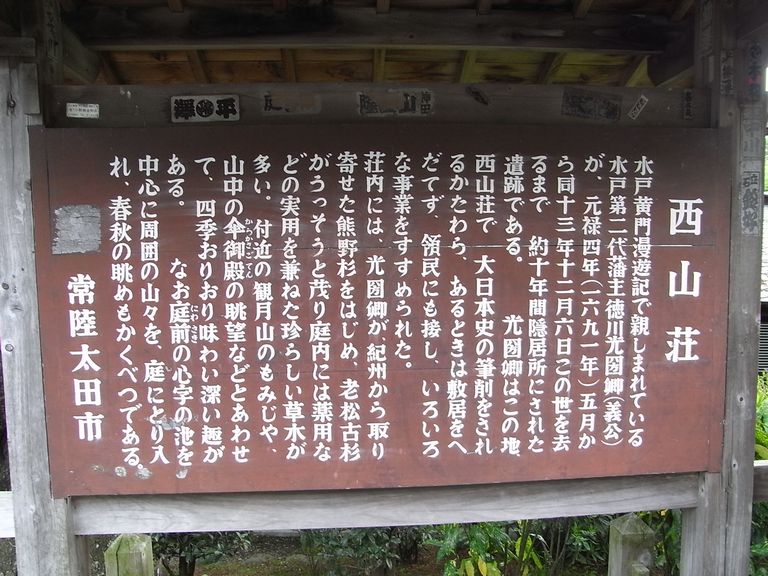 西山荘
水戸黄門漫遊記で親しまれている
水戸第二代藩主徳川光圀卿(義公)
が、元禄四年(一六九一年)五月か
ら同十三年十二月六日この世を去
るまで 約十年間隠居所にされた
遺跡である。 光圀卿はこの地
西山荘で 大日本史の筆削をされ
るかたわら、あるときは敷居をへ
だてず、領民にも接し いろいろ
な事業をすすめられた。
荘内には、光圀卿が、紀州から取り
寄せた熊野杉をはじめ、老松古杉
がうっそうと茂り庭内には薬用な
どの実用を兼ねた珍らしい草木が
多い。 付近の観月山のもみじや、
山中の傘御殿の眺望などとあわせ
からかさごてん
て、四季おりおり味わい深い趣が
ある。 なお庭前の心字の池を
にわさき
中心に周囲の山々を、庭にとり入
れ、春秋の眺めもかくべつである。
常陸太田市